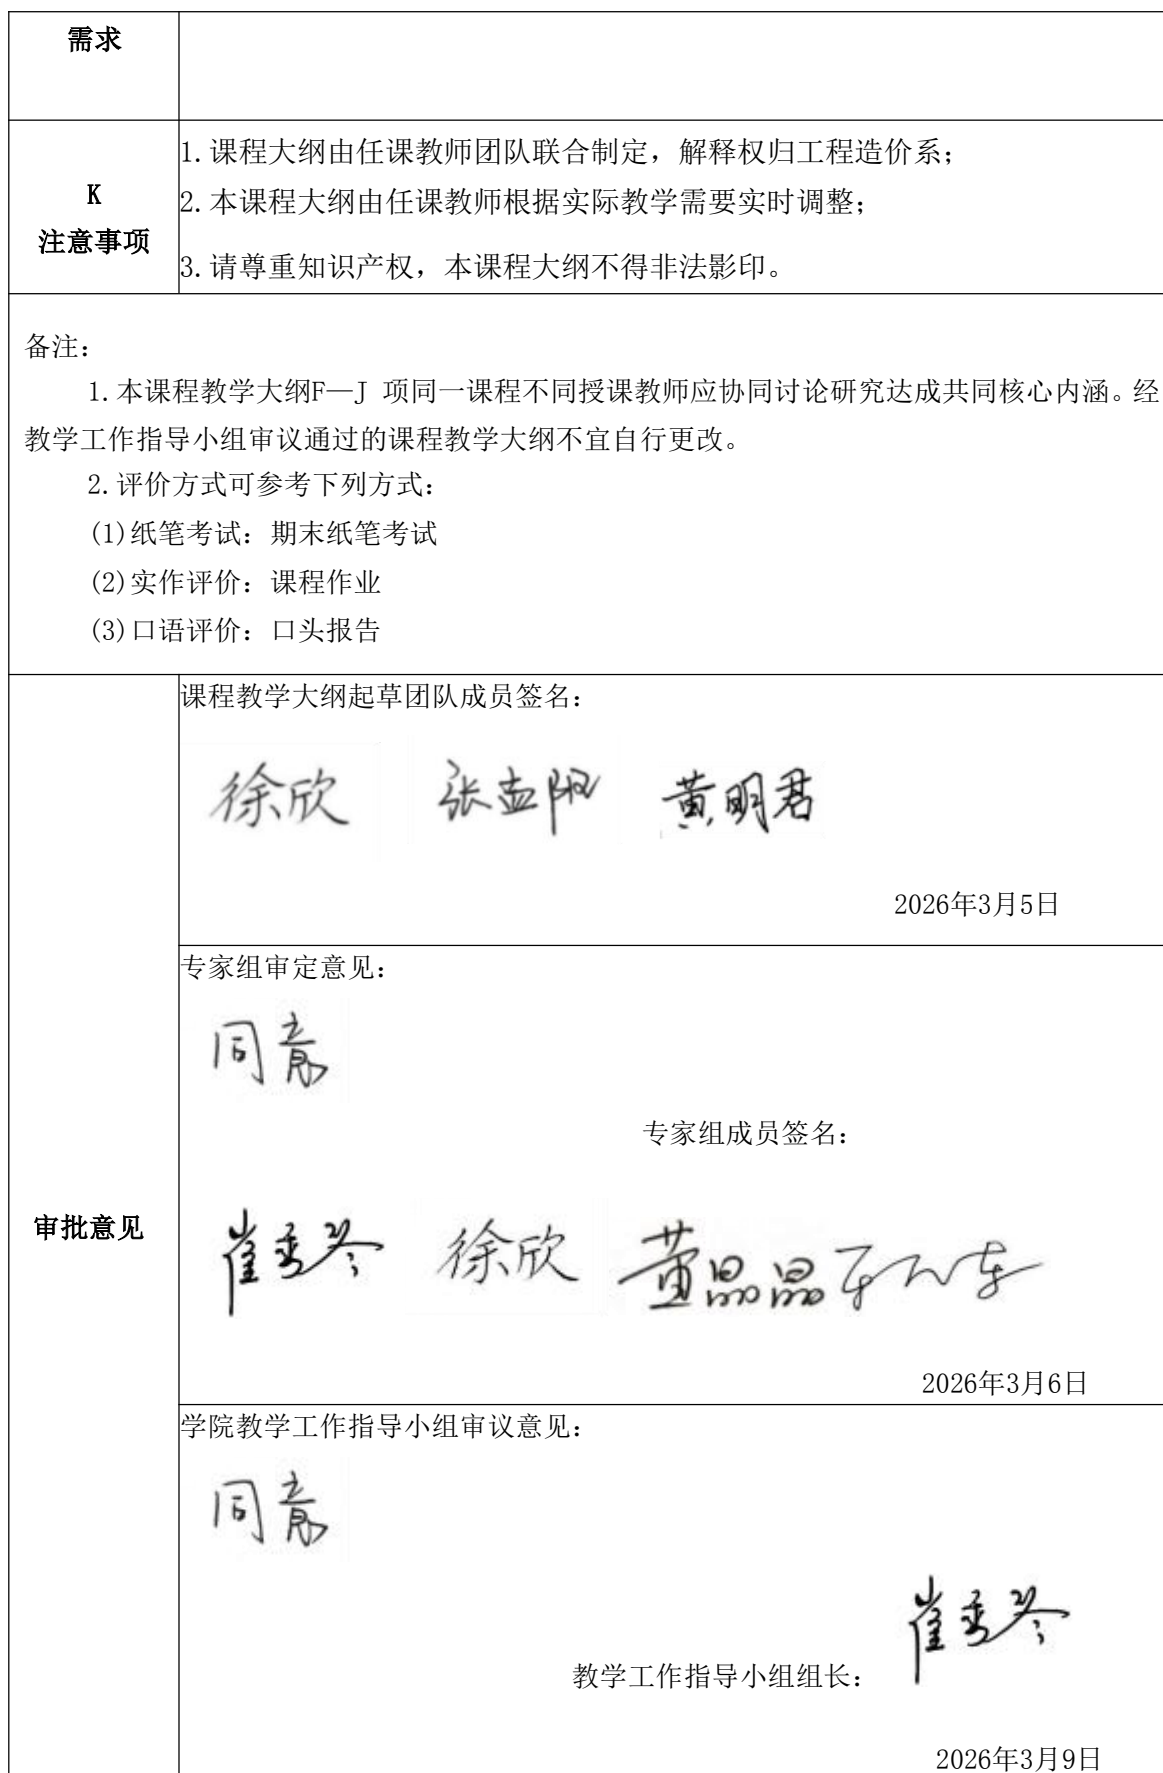 需求
K
注意事项
1.课程大纲由任课教师团队联合制定，解释权归工程造价系；
2.本课程大纲由任课教师根据实际教学需要实时调整；
3.请尊重知识产权，本课程大纲不得非法影印。
备注：
1.本课程教学大纲F—J 项同一课程不同授课教师应协同讨论研究达成共同核心内涵。经
教学工作指导小组审议通过的课程教学大纲不宜自行更改。
2.评价方式可参考下列方式：
(1)纸笔考试：期末纸笔考试
(2)实作评价：课程作业
(3)口语评价：口头报告
审批意见
课程教学大纲起草团队成员签名：
徐欣 张孟阳 黄明君
2026年3月5日
专家组审定意见：
同意
专家组成员签名：
崔秀琴 徐欣 黄晶晶
2026年3月6日
学院教学工作指导小组审议意见：
同意
教学工作指导小组组长： 崔秀琴
2026年3月9日